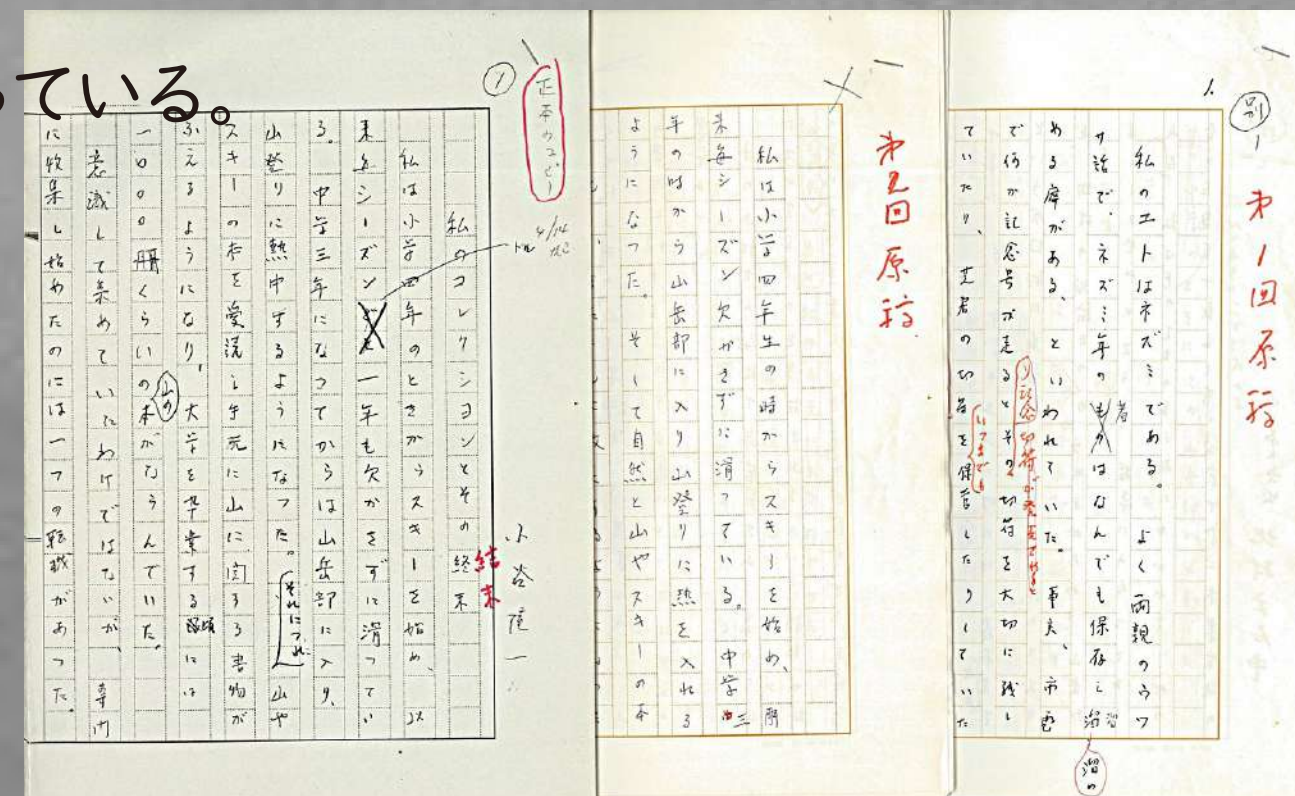 っている。
別
1
第1回原稿
私のエトはネズミである。よく両親のウワ
サ話で、ネズミ年の者はなんでも保存し溜
溜め
ある癖がある、といわれていた。事実、市電
で何か記念号が走るとその切符を大切に残し
り記念切符が発売されると
ていたり、芝君の切符を保管したりしていた
いつまでも
第2回原稿
私は小学四年生の時からスキーを始め、爾
来毎シーズン欠かさずに滑っている。中学三
年の時から山岳部に入り山登りに熱を入れる
ようになった。そして自然と山やスキーの本
1
正本のコピー
4/14
トル
私のコレクションとその終末
結末
小谷隆一
私は小学四年のときからスキーを始め、以
来毎シーズン一年も欠かさずに滑ってい
る。中学三年になってからは山岳部に入り、
山登りに熱中するようになった。それにつれ山や
スキーの本を愛読し手元に山に関する書物が
ふえるようになり、大学を卒業する頃には
一〇〇〇冊くらいの山の本がならんでいた。
意識して集めていたわけではないが、専門
に收集し始めたのには一つの転職があった。